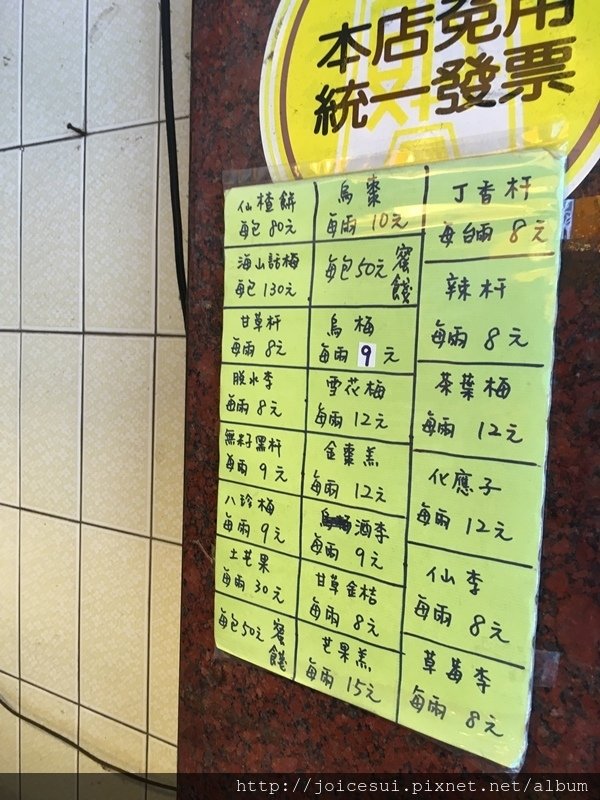 本店免用
統一發票
仙楂餅
每包 80元
海山話梅
每包 130元
甘草杆
每兩 8元
脫水李
每兩 8元
無籽黑杆
每兩 9元
八珍梅
每兩 9元
土芒果
每兩 30元
每包50元 蜜餞
烏棗
每兩 10元
每包50元 蜜餞
烏梅
每兩 9 元
雪花梅
每兩 12元
金棗羔
每兩 12元
酒李
每兩 9元
甘草金桔
每兩 8元
芒果羔
每兩 15元
丁香杆
每台兩 8元
辣杆
每兩 8元
茶葉梅
每兩 12元
化應子
每兩 12元
仙李
每兩 8元
草莓李
每兩 8元
http://joicesui.pixnet.net/album